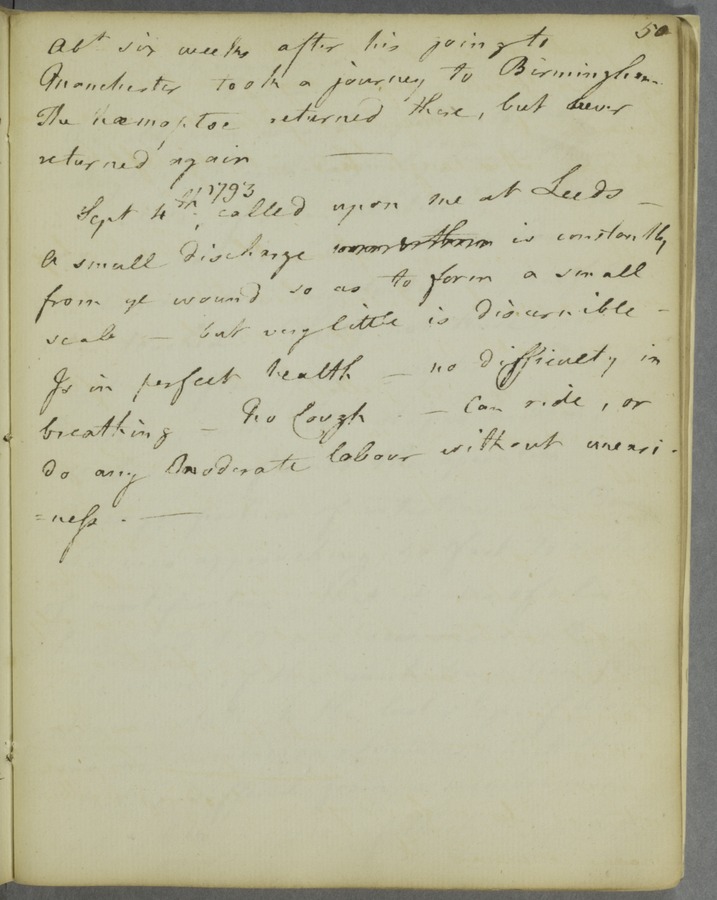 50
Abt six weeks after his going to
Manchester took a journey to Birmingham.
The haemoptoe returned there, but never
returned again ———
Sept 4th 1793, called upon me at Leeds —
A small discharge is constantly
from ye wound so as to form a small
scab — but very little is discernible —
Is in perfect health — no difficulty in
breathing — No Cough — Can ride, or
do any moderate labour without uneasi-
=ness. ———